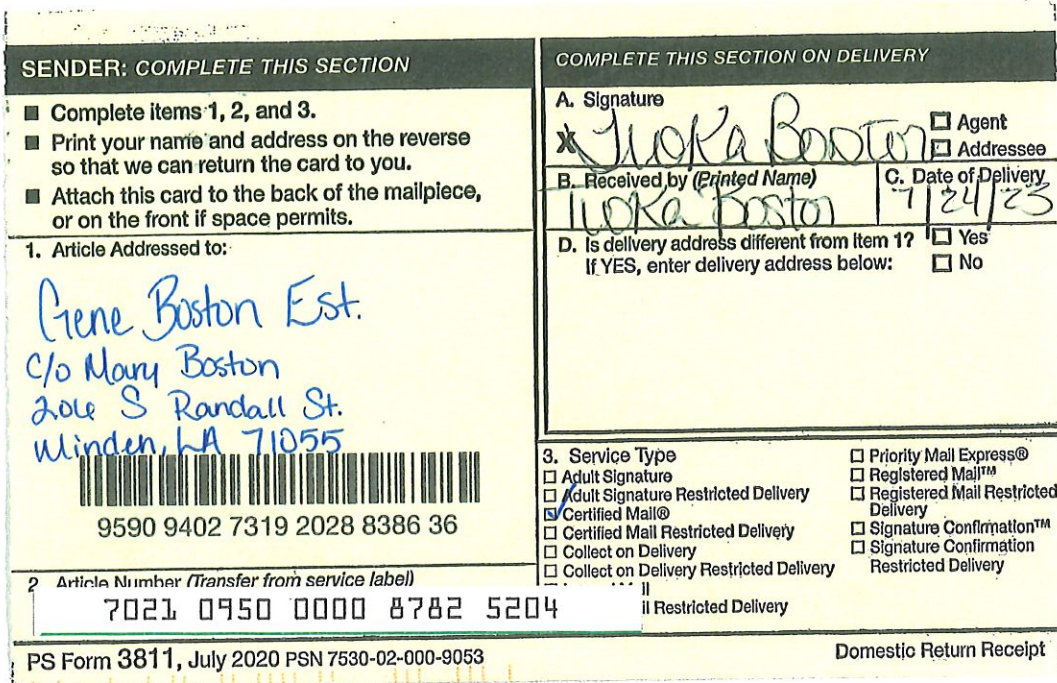 SENDER: COMPLETE THIS SECTION
■ Complete items 1, 2, and 3.
■ Print your name and address on the reverse
so that we can return the card to you.
■ Attach this card to the back of the mailpiece,
or on the front if space permits.
1. Article Addressed to:
Gene Boston Est.
C/o Mary Boston
206 S Randall St.
Minden, LA 71055
9590 9402 7319 2028 8386 36
2 Article Number (Transfer from service label)
7021 0950 0000 8782 5204
COMPLETE THIS SECTION ON DELIVERY
A. Signature
X Boston
☐ Agent
☐ Addressee
B. Received by (Printed Name)
Boston
C. Date of Delivery
7/24/23
D. Is delivery address different from item 1? ☐ Yes
If YES, enter delivery address below: ☐ No
3. Service Type
☐ Adult Signature
☐ Adult Signature Restricted Delivery
☑ Certified Mail®
☐ Certified Mail Restricted Delivery
☐ Collect on Delivery
☐ Collect on Delivery Restricted Delivery
il Restricted Delivery
☐ Priority Mail Express®
☐ Registered Mail™
☐ Registered Mail Restricted
Delivery
☐ Signature Confirmation™
☐ Signature Confirmation
Restricted Delivery
PS Form 3811, July 2020 PSN 7530-02-000-9053
Domestic Return Receipt